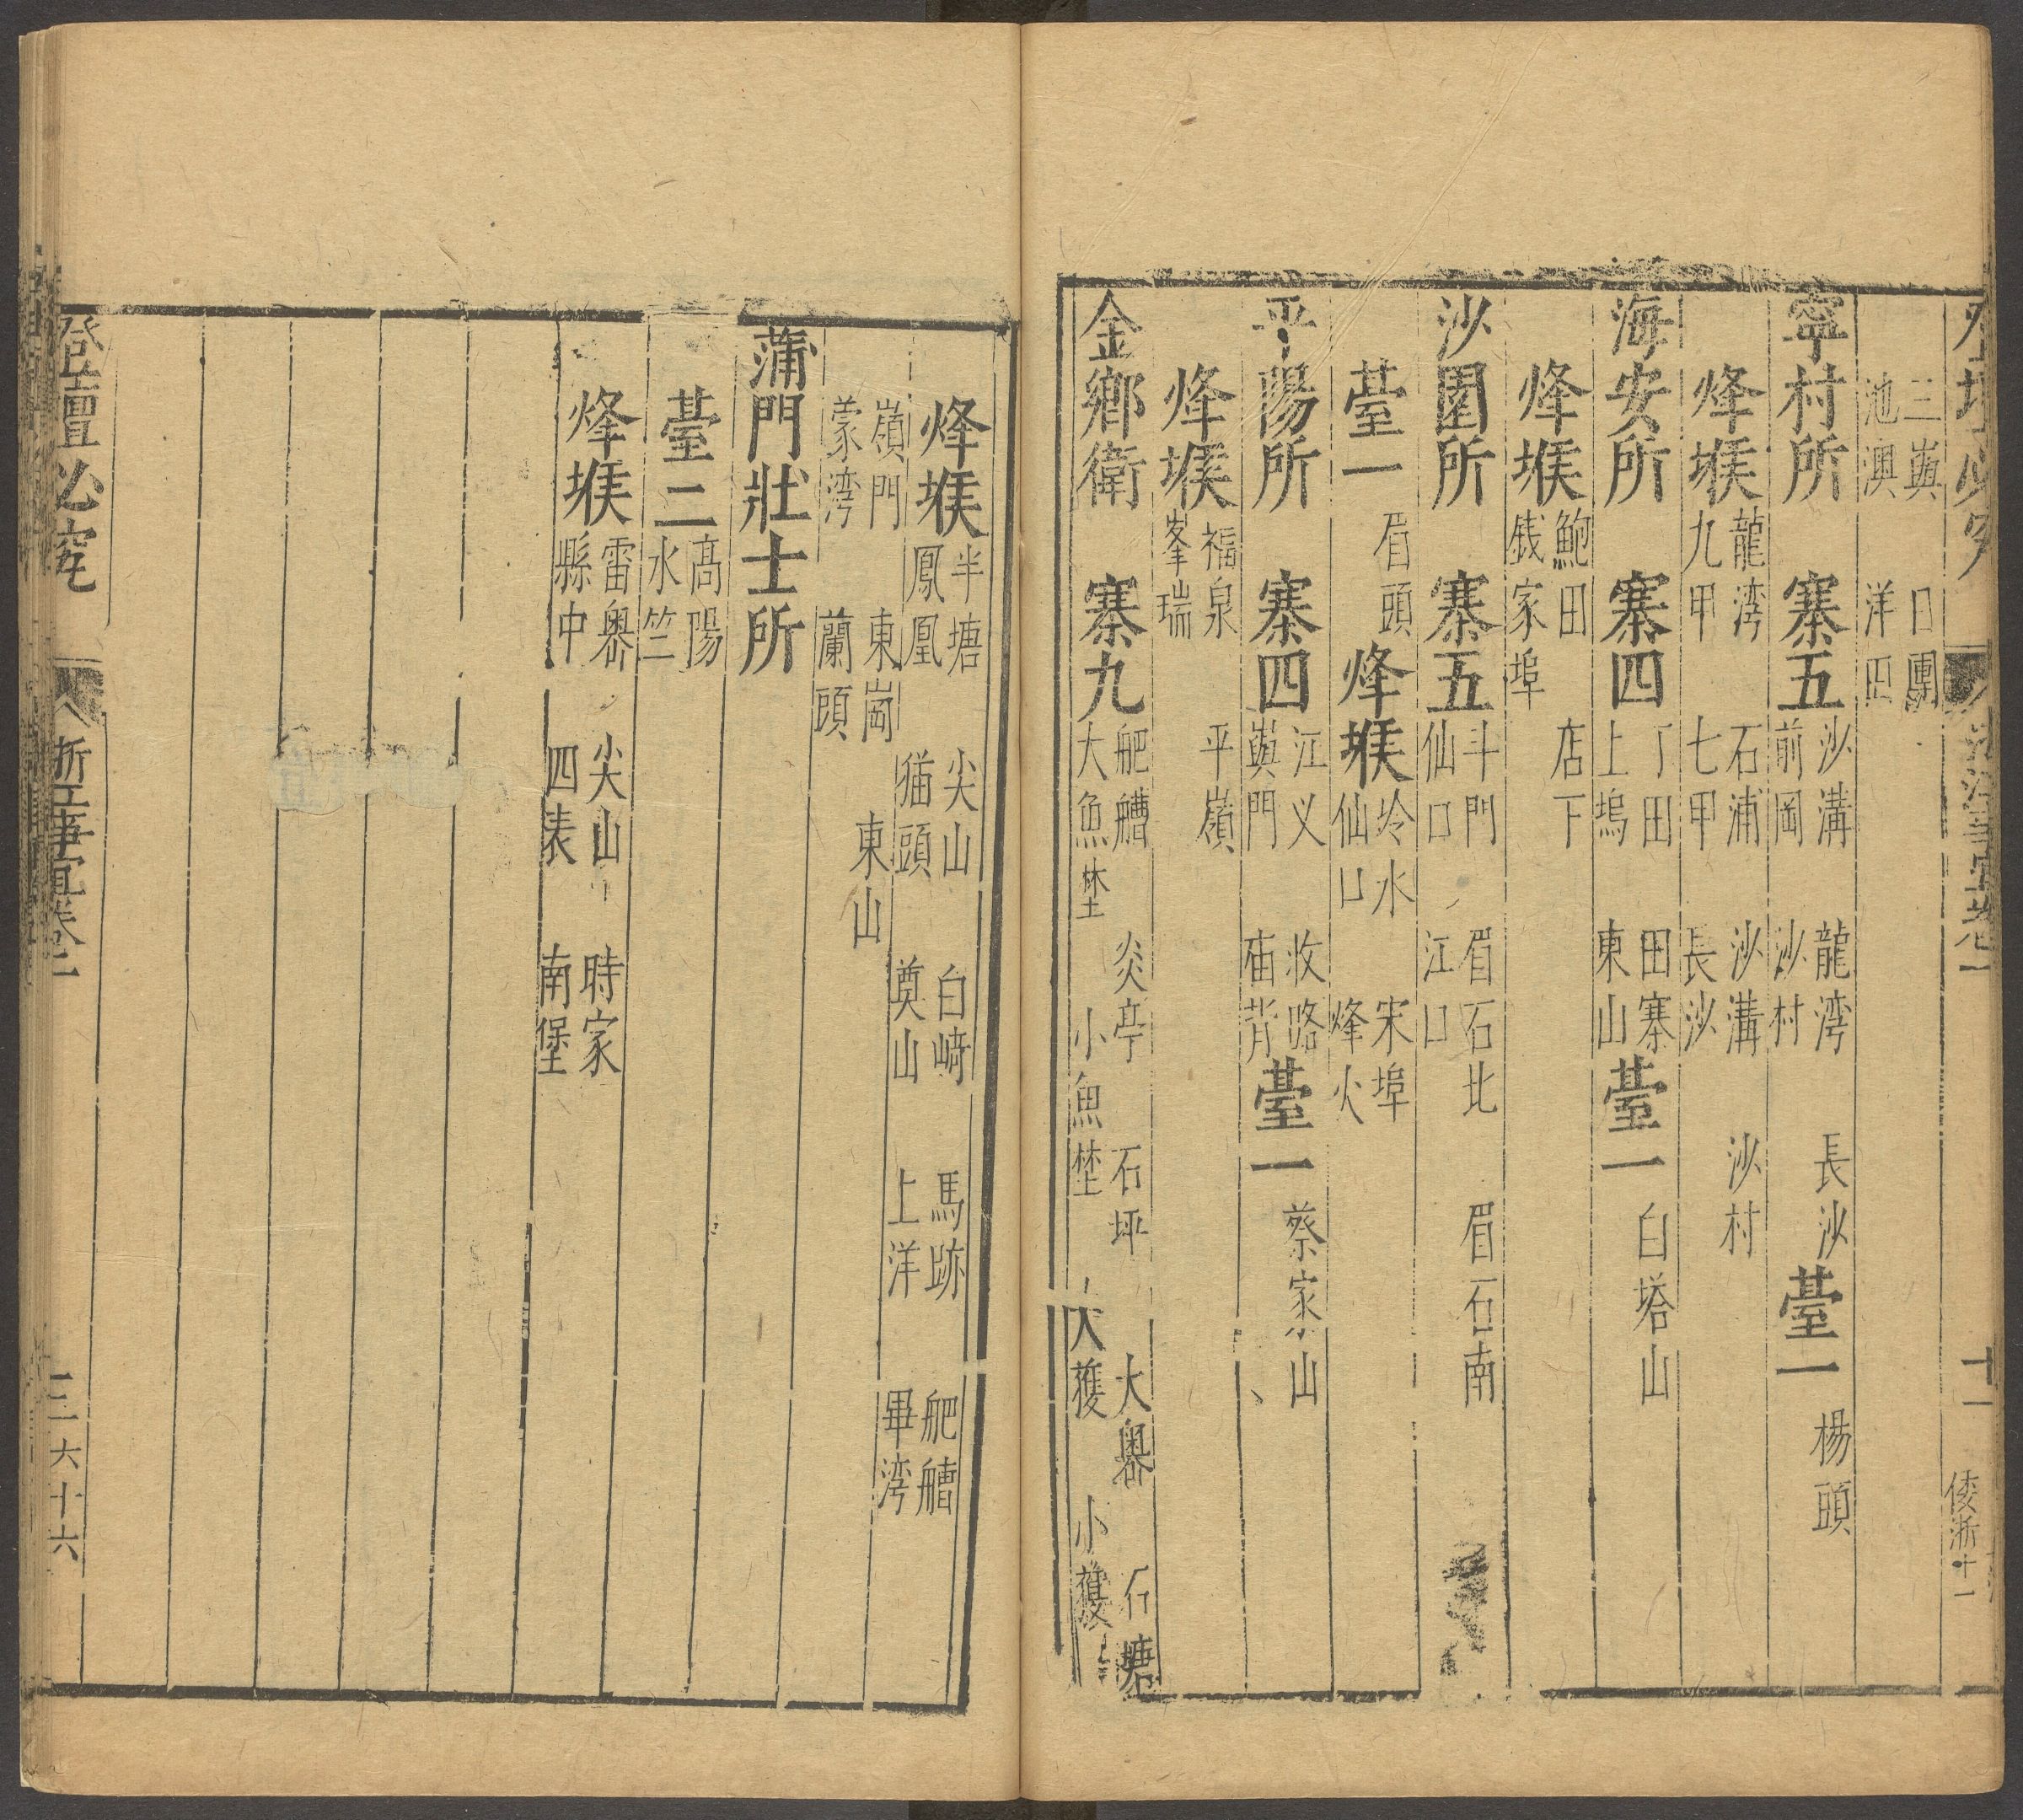 三㠘 口團
池澳 洋田
寧村所 寨五 沙溝 龍湾 長沙 前岡 沙村 臺一 楊頭
烽堠 龍湾 石浦 沙溝 沙村 九甲 七甲 長沙
海安所 寨四 丁田 田寨 上塢 東山 臺一 白塔山
烽堠 鮑田 店下 錢家埠
沙園所 寨五 斗門 眉石北 眉石南 仙口 江口
臺一 眉頭 烽堠 坽水 宋埠 仙口 烽火
平陽所 寨四 江义 㠘門 廟背 臺一 蔡家山
烽堠 福泉 平嶺 峯瑞
金鄉衛 寨九 舥艚 炎亭 石坪 大嶴 石塘 大魚埜 小魚埜 大蒦 小蒦
烽堠 半塘 尖山 白崎 馬跡 舥艚 鳳凰 猫頭 奠山 上洋 畢湾
嶺門 東崗 東山 蒙湾 蘭頭
蒲門壯士所
臺二 高陽 水竺
烽堠 雷嶴 尖山 時家 縣中 四表 南堡
登壇必究 浙江事宜卷二 三六十六